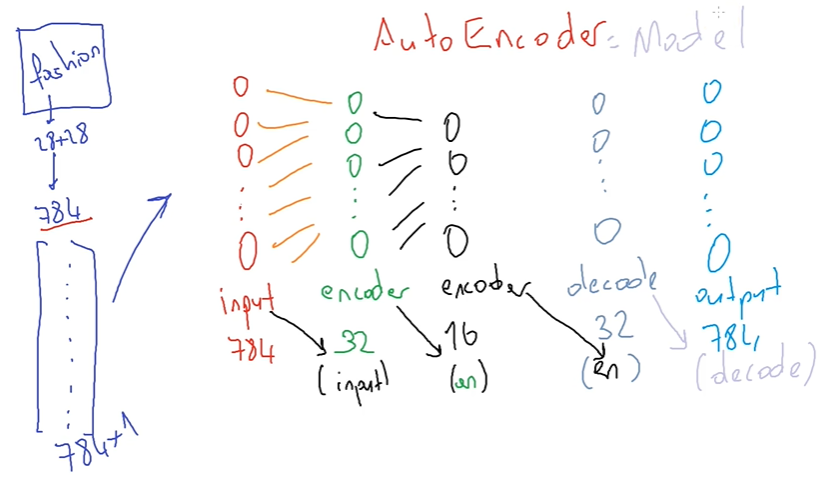 AutoEncoder = Model
fashion
28+28
784
784+1
input
784
encoder
32
(input)
encoder
16
(en)
decode
32
(en)
output
784,
(decode)